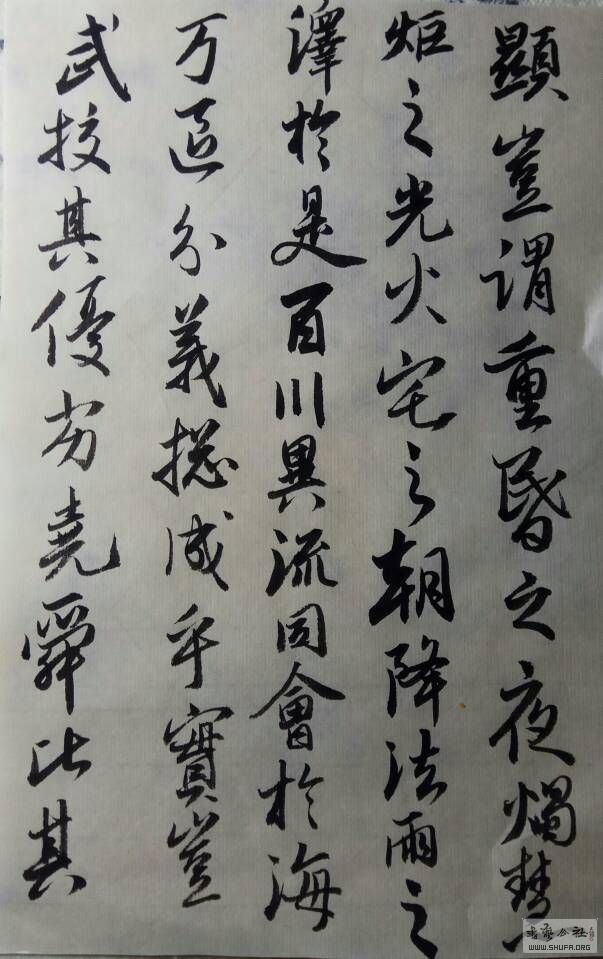 顯豈謂重昬之夜燭慧
炬之光火宅之朝降法雨之
澤於是百川異流同會於海
万區分義揔成乎實豈
武挍其優劣堯舜比其
書藝公社
WWW.SHUFA.ORG